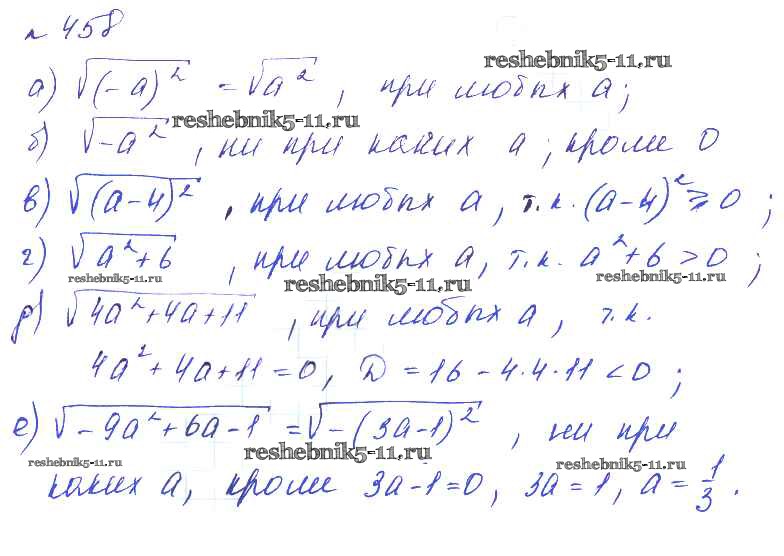 № 458
reshebnik5-11.ru
а) √(-a)² = √a², при любых a;
reshebnik5-11.ru
б) √-a², ни при каких a; кроме 0
в) √(a-4)², при любых a, т.к. (a-4)² ≥ 0;
г) √a²+6, при любых a, т.к. a²+6 > 0;
reshebnik5-11.ru reshebnik5-11.ru reshebnik5-11.ru
д) √4a²+4a+11, при любых a, т.к.
4a²+4a+11=0, D=16-4·4·11<0;
е) √-9a²+6a-1 = √-(3a-1)², ни при
reshebnik5-11.ru reshebnik5-11.ru reshebnik5-11.ru
каких a, кроме 3a-1=0, 3a=1, a=1/3.